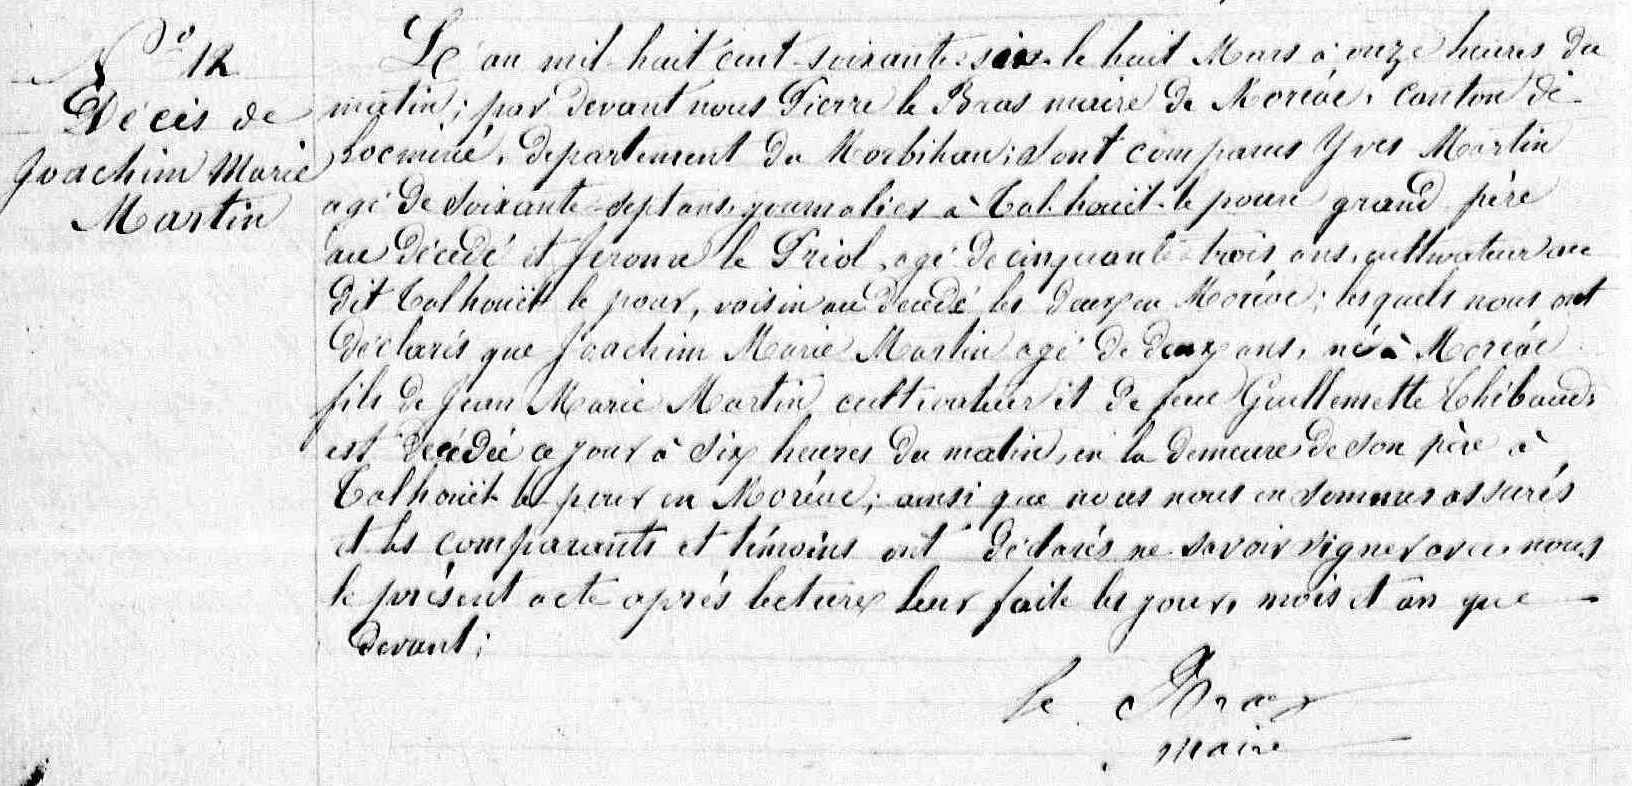 N° 12
Décès de
Joachim Marie
Martin
L'an mil huit cent soixante six le huit Mars à onze heures du
matin; par devant nous Pierre le Bras maire de Moréac, canton de
Locminé, departement du Morbihan; sont comparus Yves Martin
agé de soixante sept ans, journalier à Talhouët le pour grand père
au décédé et Jérome le Priol, agé de cinquante trois ans, cultivateur au
dit Talhouët le pour, voisin au decedé les deux en Moréac; lesquels nous ont
déclarés que Joachim Marie Martin agé de deux ans, né à Moréac
fils de Jean Marie Martin cultivateur et de feue Guillemette Thibaud,
est décédé ce jour à six heures du matin, en la demeure de son père à
Talhouët le pour en Moréac; ainsi que nous nous en sommes assurés
et les comparants et témoins ont déclarés ne savoir signer avec nous
le présent acte après lecture leur faite les jour, mois et an que
devant;
le Bras
maire